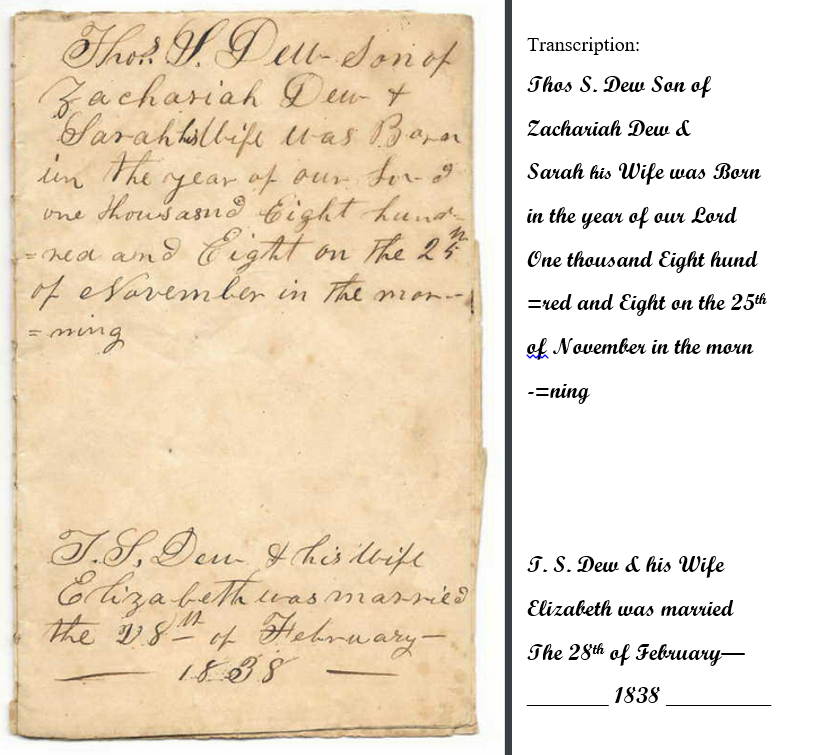 Thos. S. Dew Son of
Zachariah Dew &
Sarah his Wife was Born
in the year of our Lord
one thousand Eight hund-
=red and Eight on the 25th
of November in the mor-
=ning
T. S. Dew & his Wife
Elizabeth was married
the 28th of February—
— 1838 —
Transcription:
Thos S. Dew Son of
Zachariah Dew &
Sarah his Wife was Born
in the year of our Lord
One thousand Eight hund
=red and Eight on the 25th
of November in the morn
-=ning
T. S. Dew & his Wife
Elizabeth was married
The 28th of February—
________ 1838 __________